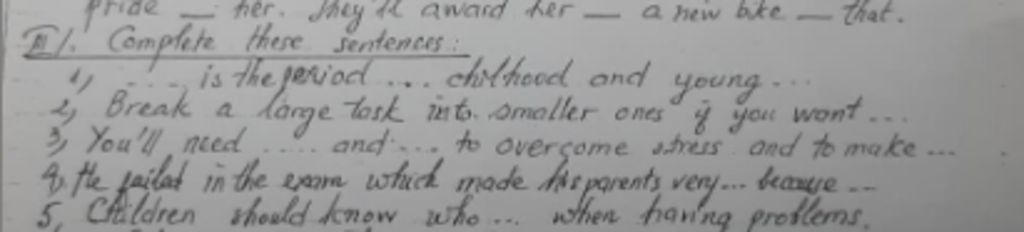 pride __ her. They'll award her __ a new bike __ that.
III/. Complete these sentences:
1, .... is the period .... chilhood and young ...
2, Break a large task into smaller ones if you want ...
3, You'll need ..... and .... to overcome stress and to make ...
4, He failed in the exam which made his parents very... because ...
5, Children should know who ... when having problems.